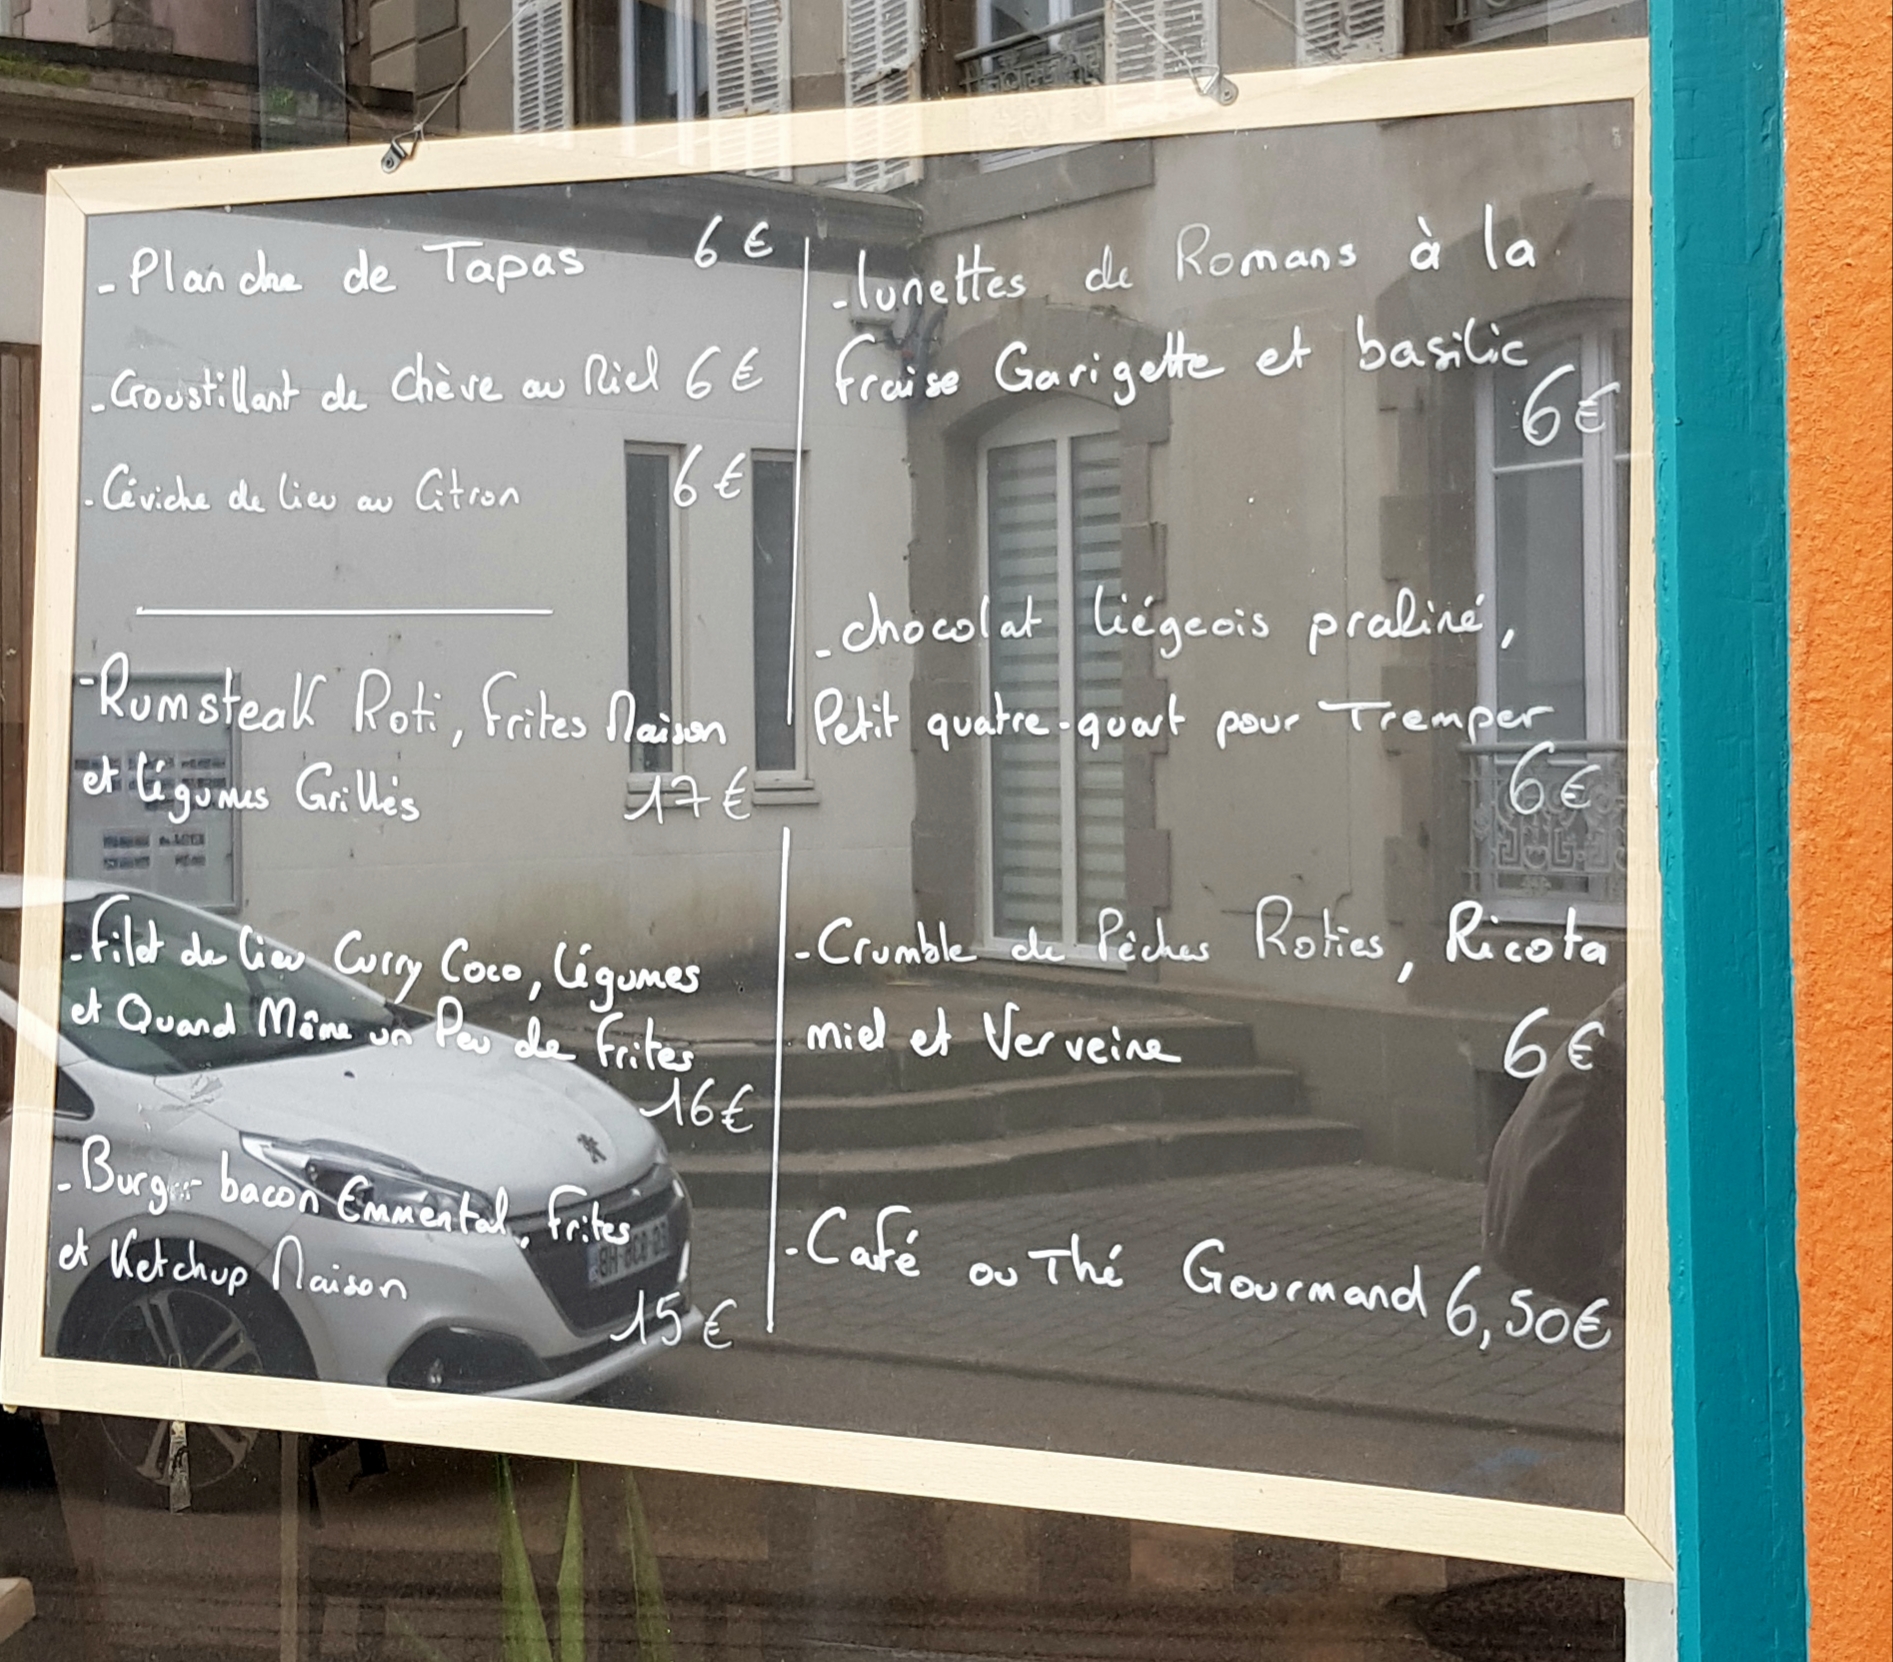 - Planche de Tapas 6 €
- Croustillant de Chèvre au Miel 6 €
- Céviche de lieu au Citron 6 €
- Rumsteak Roti, Frites Maison
et légumes Grillés 17 €
- Filet de lieu Curry Coco, légumes
et Quand Même un Peu de Frites
16 €
- Burger bacon Emmental, Frites
et Ketchup Maison
15 €
- lunettes de Romans à la
Fraise Garigette et basilic
6 €
- chocolat liégeois praliné,
Petit quatre-quart pour Tremper
6 €
- Crumble de Pêches Roties, Ricota
miel et Verveine 6 €
- Café ou Thé Gourmand 6,50€